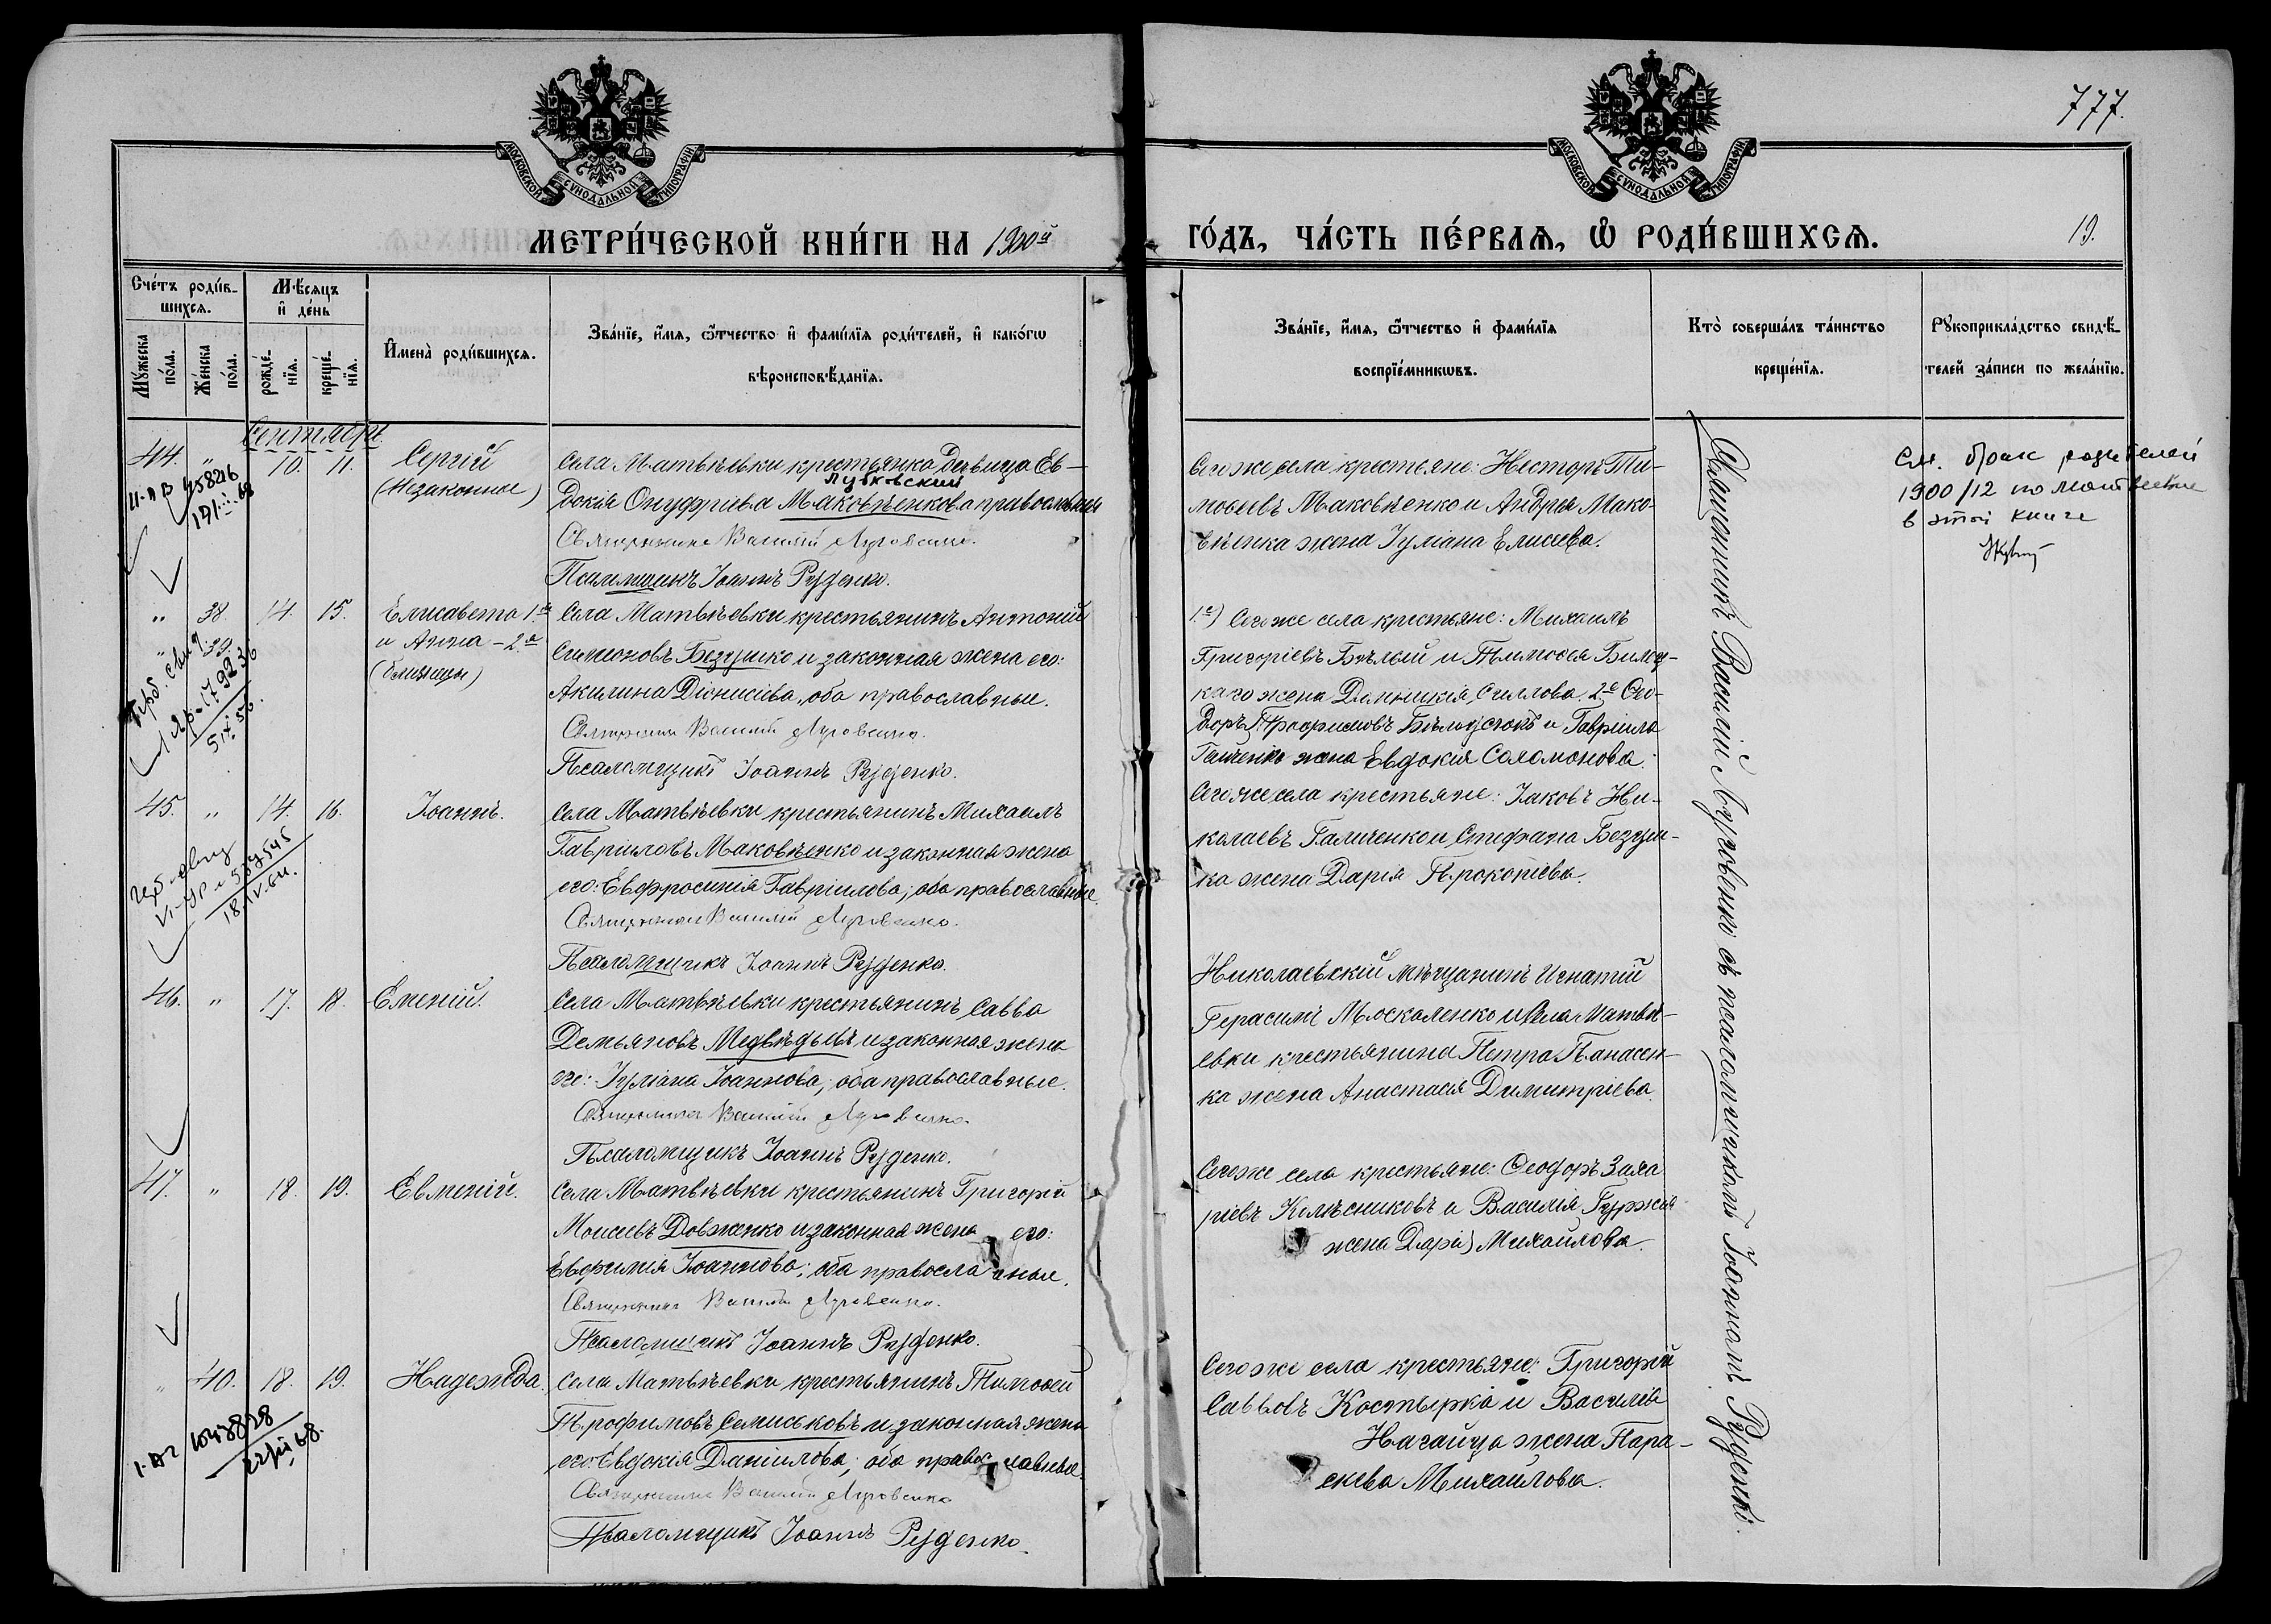 777.
МОСКОВСКОЙ СѴНОДАЛЬНОЙ ТИПОГРАФІИ
МОСКОВСКОЙ СѴНОДАЛЬНОЙ ТИПОГРАФІИ
МЕТРИ́ЧЕСКОЙ КНИ́ГИ НА 1900й
ГО́ДЪ, ЧА́СТЬ ПЕ́РВАѦ, Ѡ҆ РОДИ́ВШИХСѦ.
19.
Сче́тъ роди́в-
шихсѧ.
Мꙋ́жеска по́ла.
Же́нска по́ла.
Мѣ́сѧцъ
и҆ де́нь
рожде́-
нїѧ.
креще́-
нїѧ.
И҆мена̀ роди́вшихсѧ.
Зва́нїе, и҆́мѧ, ѻ҆́тчество и҆ фами́лїѧ роди́телей, и҆ како́гѡ
вѣроисповѣ́данїѧ.
Зва́нїе, и҆́мѧ, ѻ҆́тчество и҆ фами́лїѧ
воспрїе́мникѡвъ.
Кто̀ соверша́лъ та́инство
креще́нїѧ.
Рꙋкоприкла́дство свидѣ́-
телей за́писи по жела́нїю.
Сентябрь
44. " 10. 11. Сергій
(Незаконное)
Села Матвѣевки крестьянка дѣвица Ев-
Лубковский
докія Онуфріева Маковѣенкова православная
Священникъ Василій Луговенко.
Псаломщикъ Іоаннъ Руденко.
Того же села крестьяне: Несторъ Ти-
моѳеевъ Маковѣенко и Андрея Мако-
вѣенка жена Іуліана Елисеева.
См. брак родителей
1900/12 по Матвеевке
в этой книге
" 38. 14. 15. Елисавета 1я
" 39. и Анна - 2я
(близнецы)
Села Матвѣевки крестьянинъ Антоній
Симеоновъ Безушко и законная жена его:
Акилина Діонисіева, оба православные.
Священникъ Василій Луговенко.
Псаломщикъ Іоаннъ Руденко.
1е) Того же села крестьяне: Михаилъ
Григоріевъ Бѣлый и Тимоѳея Билец-
каго жена
доръ Трофимовъ и Гавріила
жена Евдокія Соломонова.
45. " 14. 16. Іоаннъ.
Села Матвѣевки крестьянинъ Михаилъ
Гавріиловъ Маковѣенко и законная жена
его: Евфросинія Гавріилова, оба православные.
Священникъ Василій Луговенко.
Псаломщикъ Іоаннъ Руденко.
Того же села крестьяне: Іаковъ Ни-
колаевъ Галиченко и Стефана Безуш-
ка жена Дарія Прокопіева.
46. " 17. 18. Евменій.
Села Матвѣевки крестьянинъ Савва
Демьяновъ Медвѣдевъ и законная жена
его: Іуліана Іоаннова, оба православные.
Священникъ Василій Луговенко.
Псаломщикъ Іоаннъ Руденко.
Николаевскій мѣщанинъ Игнатій
Герасимъ Москаленко и села Матвѣ-
евки крестьянина Петра Панасен-
ка жена Анастасія Димитріева.
47. " 18. 19. Евменій.
Села Матвѣевки крестьянинъ Григорій
Моисеевъ Довженко и законная жена его:
Евфимія Іоаннова; оба православные.
Священникъ Василій Луговенко.
Псаломщикъ Іоаннъ Руденко.
Того же села крестьяне: Ѳеодоръ Заха
ріевъ Колѣсниковъ и Василія Гуржія
жена Дарія Михайлова.
" 40. 18. 19. Надежда.
Села Матвѣевки крестьянинъ Тимоѳей
Трофимовъ Семиськовъ и законная жена
его Евдокія Даніилова; оба православные.
Священникъ Василій Луговенко
Псаломщикъ Іоаннъ Руденко.
Того же села крестьяне: Григорій
Саввовъ Костырка и Василія
Нагайца жена Пара-
скева Михайлова.
Священникъ Василій Луговенко съ псаломщикомъ Іоанномъ Руденко.